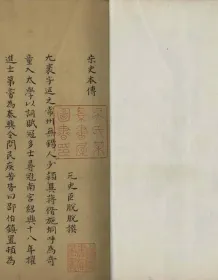 宋史本傳
元史臣脫脫撰
尤袤字延之常州無錫人少穎異蔣偕施坰呼為奇
童入太學以詞賦冠多士尋冠南宮紹興十八年擢
進士第嘗為泰興令問民疾苦皆曰邵伯鎮置頓為